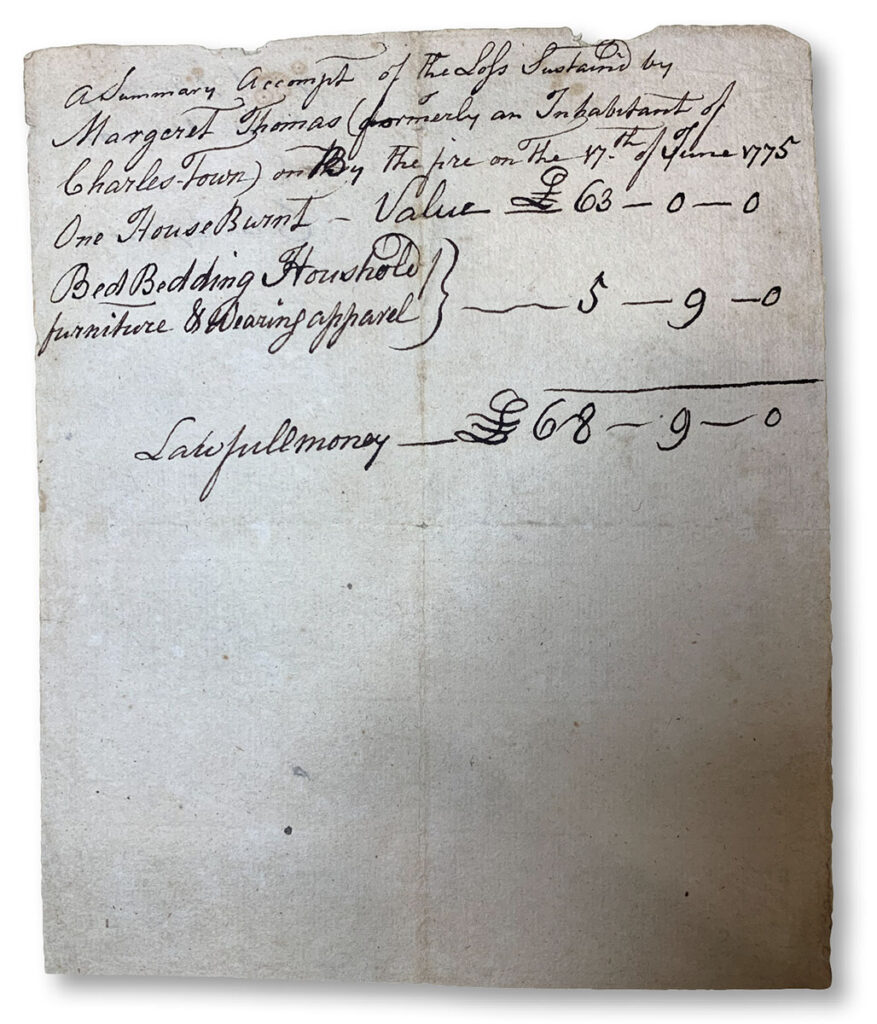 A Summary Accompt of the Loss Sustain'd by
Margeret Thomas (formerly an Inhabitant of
Charles-Town) on By the fire on the 17.th of June 1775
One House Burnt - Value £ 63 - 0 - 0
Bed Bedding Houshold
furniture & Wearing apparel } 5 - 9 - 0
Lawfull money - £ 68 - 9 - 0